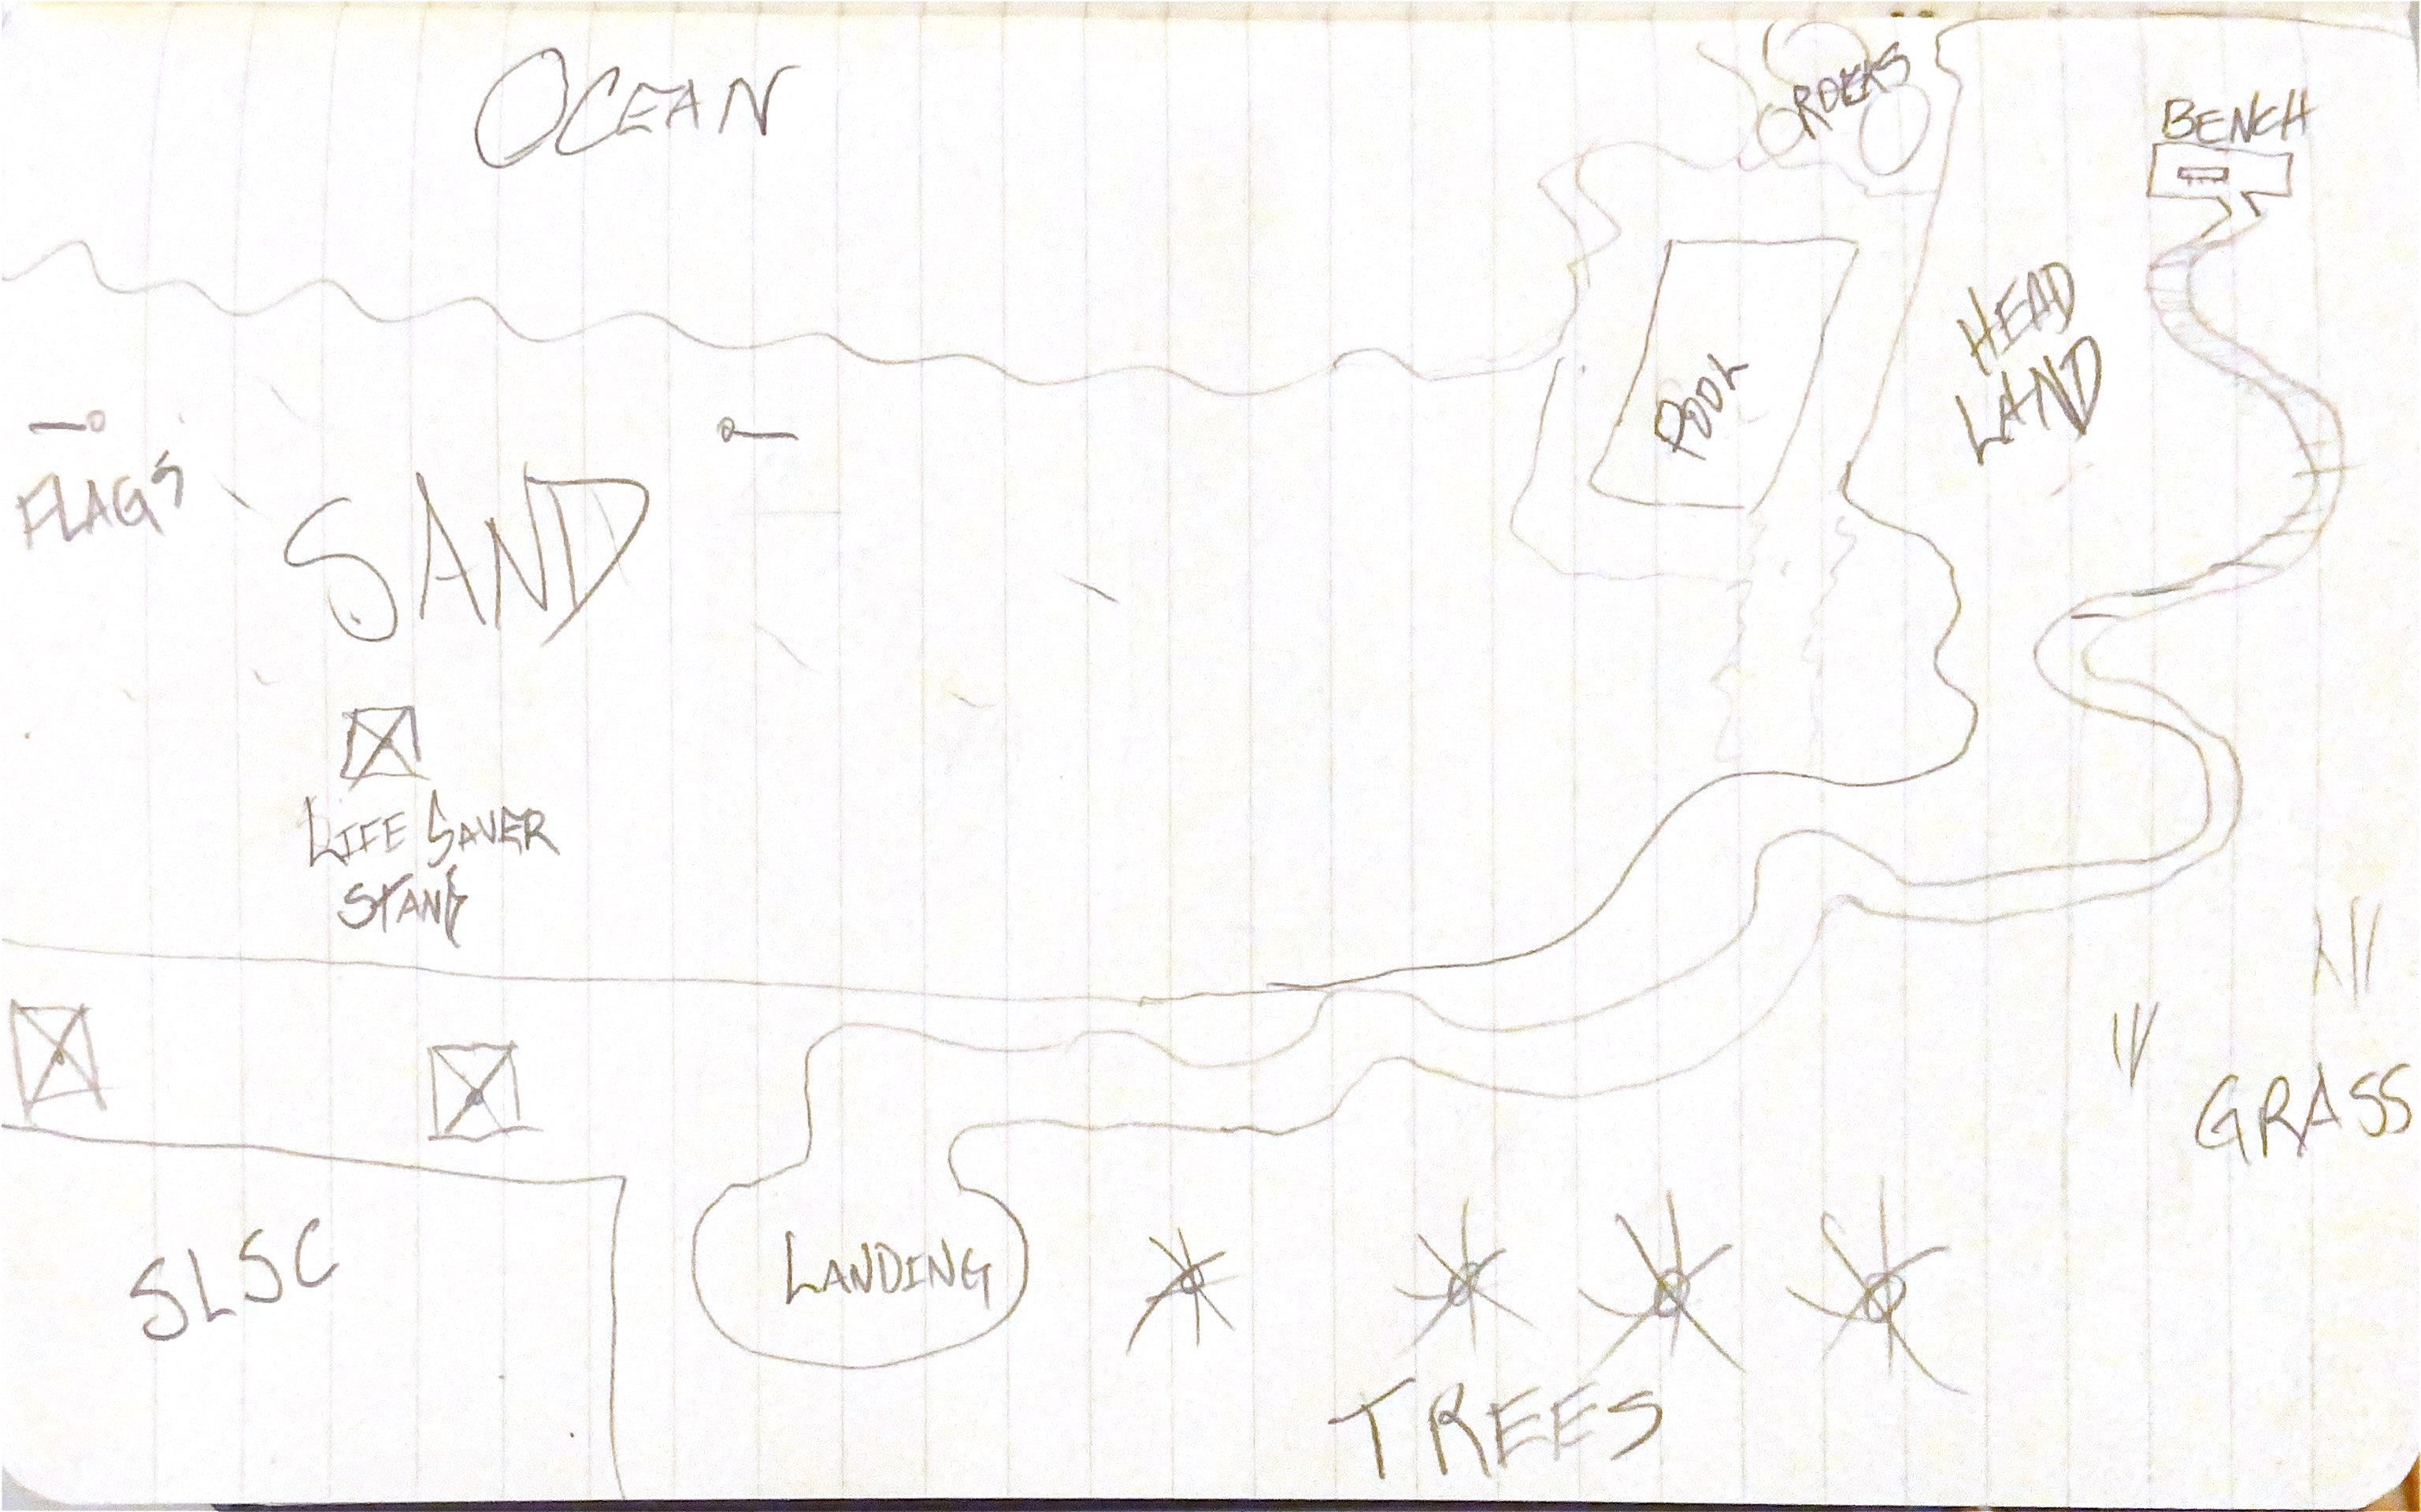 OCEAN
BENCH
HEAD
LAND
POOL
FLAGS
SAND
LIFE SAVER
STAND
GRASS
SLSC
LANDING
TREES